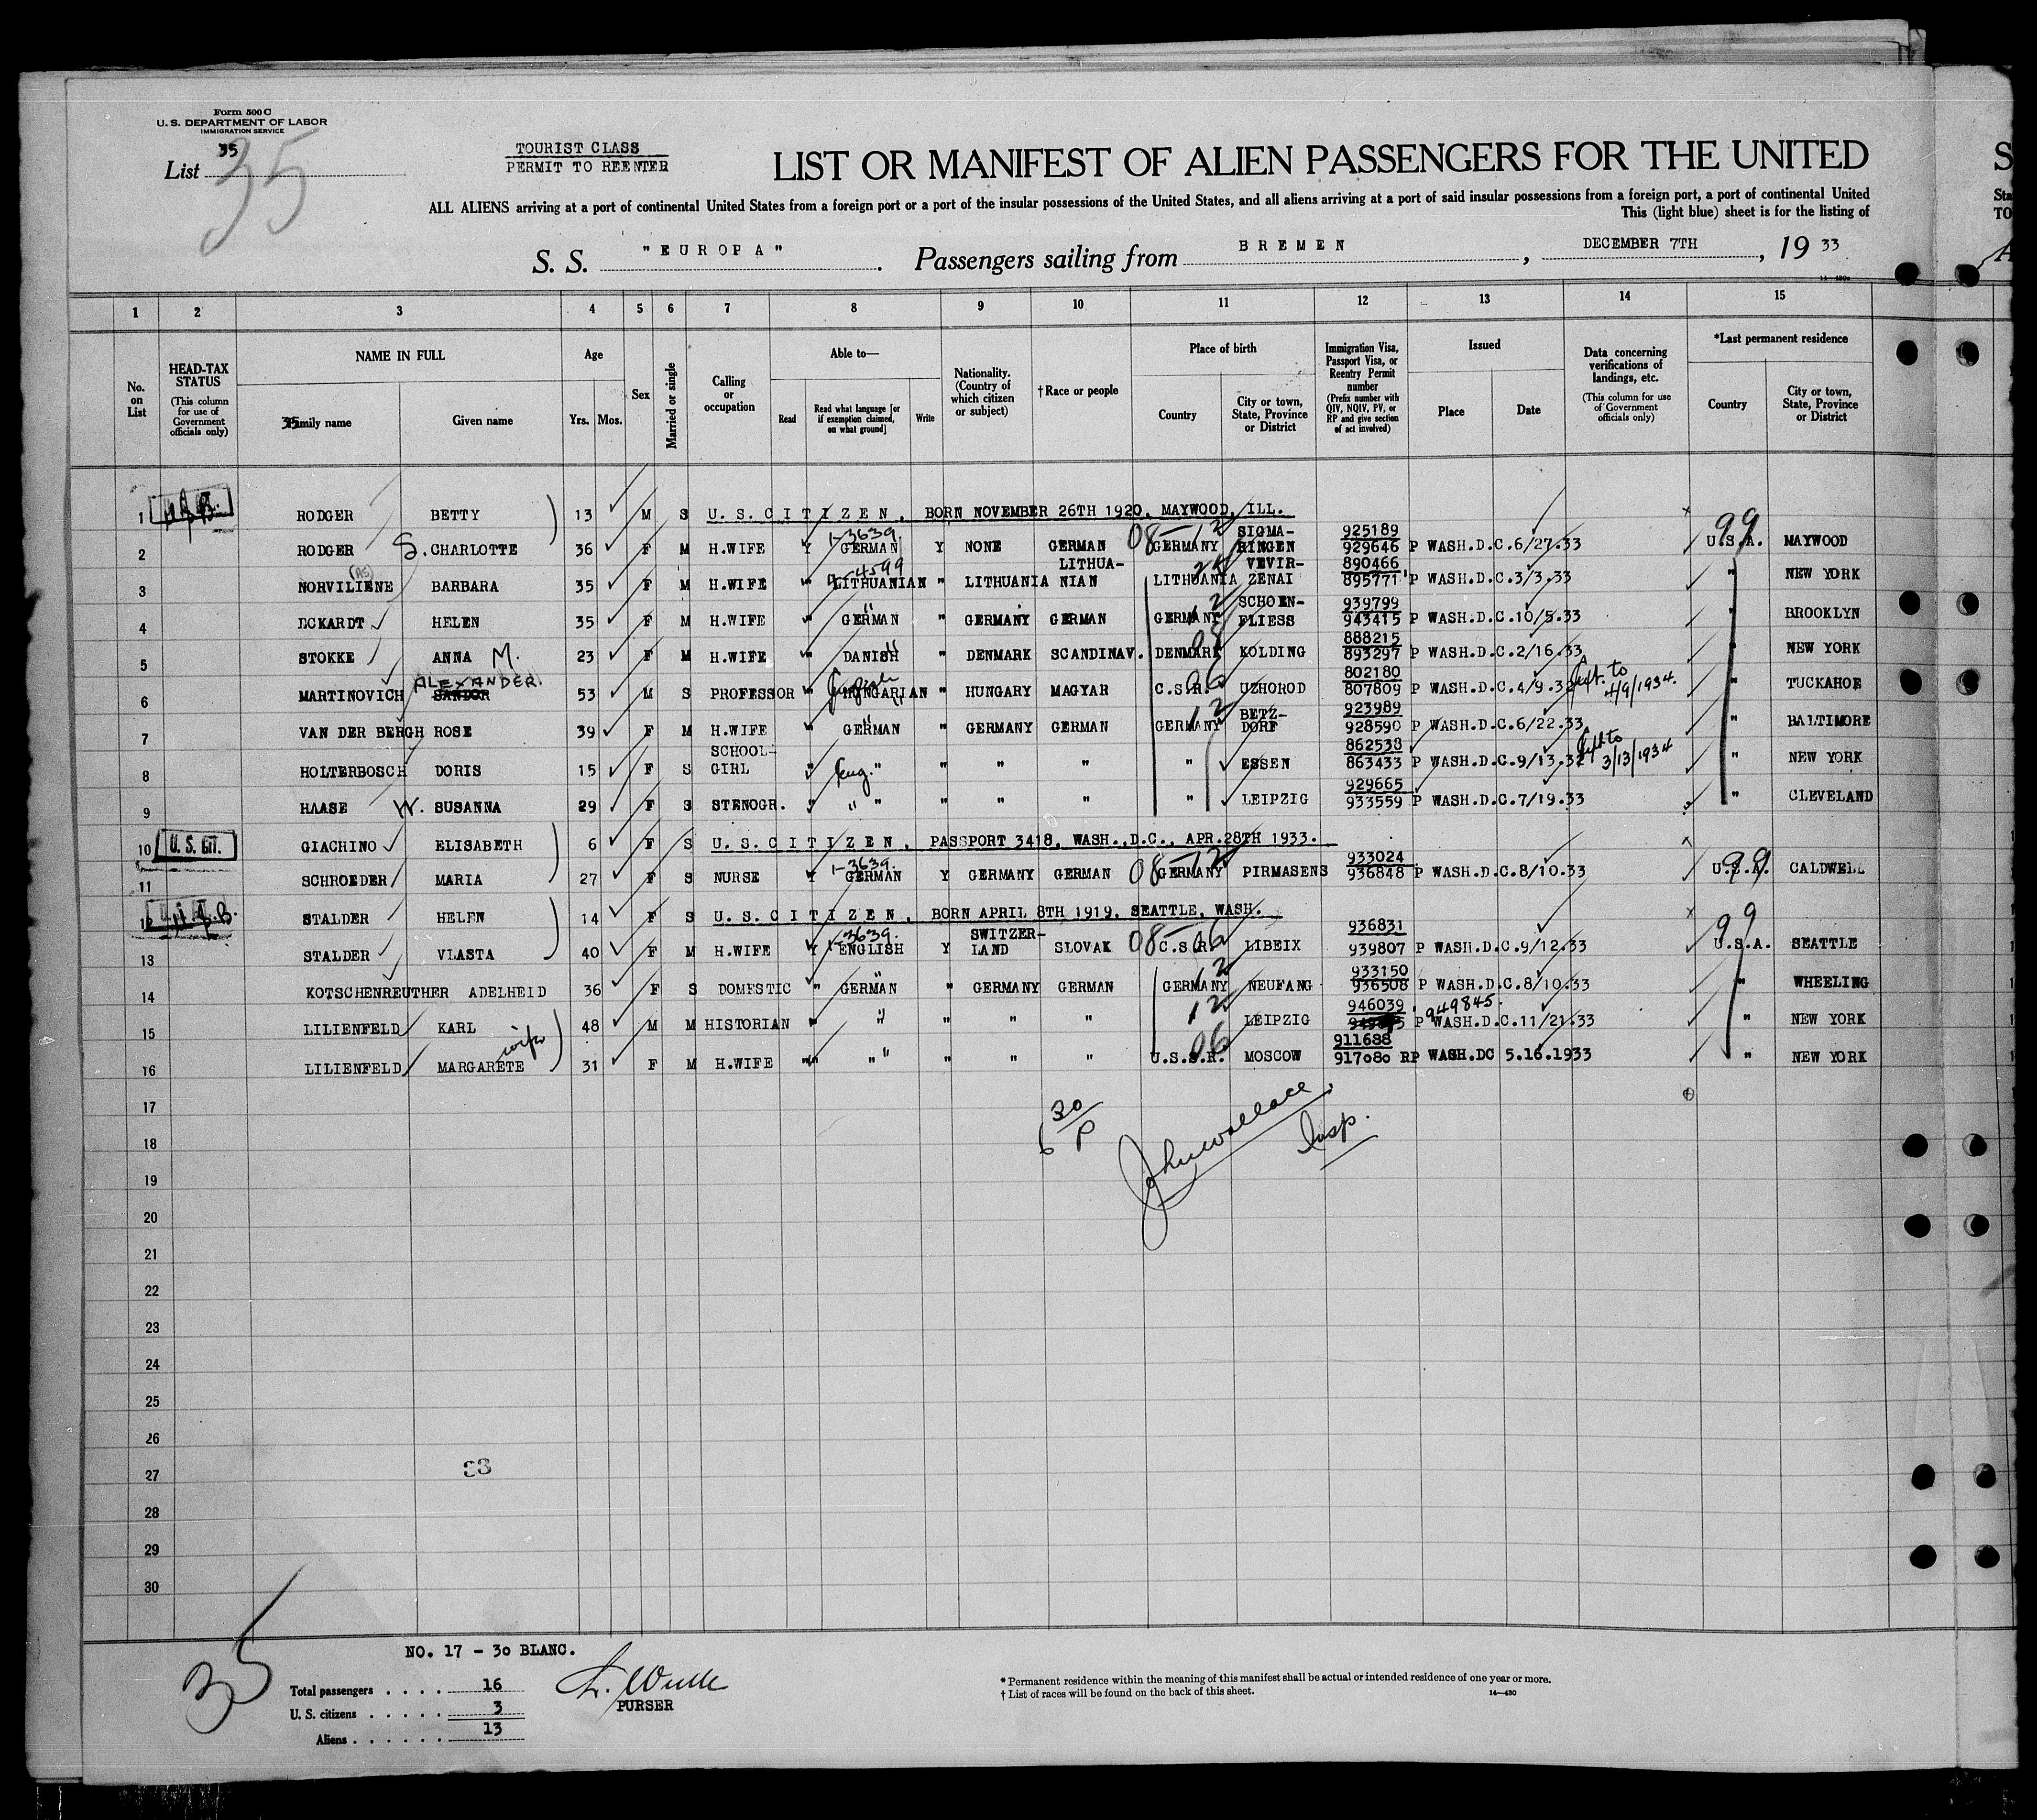 Form 500 C
U. S. DEPARTMENT OF LABOR
IMMIGRATION SERVICE
List 35
35
TOURIST CLASS
PERMIT TO REENTER
LIST OR MANIFEST OF ALIEN PASSENGERS FOR THE UNITED
S
ALL ALIENS arriving at a port of continental United States from a foreign port or a port of the insular possessions of the United States, and all aliens arriving at a port of said insular possessions from a foreign port, a port of continental United
Sta
This (light blue) sheet is for the listing of
TO
S. S. "EUROPA". Passengers sailing from BREMEN, DECEMBER 7TH, 19 33
1 2 3 4 5 6 7 8 9 10 11 12 13 14 15
No. on List
HEAD-TAX STATUS (This column for use of Government officials only)
NAME IN FULL
Family name
Given name
Age
Yrs. Mos.
Sex
Married or single
Calling or occupation
Able to—
Read
Read what language [or if exemption claimed, on what ground]
Write
Nationality. (Country of which citizen or subject)
†Race or people
Place of birth
Country
City or town, State, Province or District
Immigration Visa, Passport Visa, or Reentry Permit number (Prefix number with QIV, NQIV, PV, or RP and give section of act involved)
Issued
Place
Date
Data concerning verifications of landings, etc. (This column for use of Government officials only)
*Last permanent residence
Country
City or town, State, Province or District
1 RODGER BETTY 13 M S U.S.CITIZEN, BORN NOVEMBER 26TH 1920, MAYWOOD, ILL.
2 RODGER S. CHARLOTTE 36 F M H.WIFE Y 1-3639. GERMAN Y NONE GERMAN 08-12 GERMANY SIGMARINGEN 925189 929646 P WASH.D.C.6/27.33 99 U.S.A. MAYWOOD
3 NORVILIENE (AS) BARBARA 35 F M H.WIFE " LITHUANIAN " LITHUANIA LITHUA-NIAN LITHUANIA VEVIR-ZENAI 890466 895771 P WASH.D.C.3/3.33 " NEW YORK
4 ECKARDT HELEN 35 F M H.WIFE " GERMAN " GERMANY GERMAN 12 GERMANY SCHOEN-FLIESS 939799 943415 P WASH.D.C.10/5.33 " BROOKLYN
5 STOKKE ANNA M. 23 F M H.WIFE " DANISH " DENMARK SCANDINAV. 08 DENMARK KOLDING 888215 893297 P WASH.D.C.2/16.33 " NEW YORK
6 MARTINOVICH SANDOR ALEXANDER. 53 M S PROFESSOR " English HUNGARIAN " HUNGARY MAGYAR 06 C.S.R. UZHOROD 802180 807809 P WASH.D.C.4/9.32 to 4/9/1934. " TUCKAHOE
7 VAN DER BERGH ROSE 39 F M H.WIFE " GERMAN " GERMANY GERMAN 12 GERMANY BETZ-DORF 923989 928590 P WASH.D.C.6/22.33 " BALTIMORE
8 HOLTERBOSCH DORIS 15 F S SCHOOL-GIRL " Eng. " " " " " ESSEN 862538 863433 P WASH.D.C.9/13.32 to 3/13/1934 " NEW YORK
9 HAASE W. SUSANNA 29 F S STENOGR. " " " " " " LEIPZIG 929665 933559 P WASH.D.C.7/19.33 " CLEVELAND
10 U.S. Cit. GIACHINO ELISABETH 6 F S U.S.CITIZEN, PASSPORT 3418, WASH.,D.C., APR.28TH 1933.
11 SCHROEDER MARIA 27 F S NURSE Y 1-3639. GERMAN Y GERMANY GERMAN 08-12 GERMANY PIRMASENS 933024 936848 P WASH.D.C.8/10.33 99 U.S.A. CALDWELL
12 STALDER HELEN 14 F S U.S.CITIZEN, BORN APRIL 8TH 1919, SEATTLE, WASH.
13 STALDER VLASTA 40 F M H.WIFE Y 1-3639. ENGLISH Y SWITZER-LAND SLOVAK 08-06 C.S.R. LIBEIX 936831 939807 P WASH.D.C.9/12.33 99 U.S.A. SEATTLE
14 KOTSCHENREUTHER ADELHEID 36 F S DOMESTIC " GERMAN " GERMANY GERMAN 12 GERMANY NEUFANG 933150 936508 P WASH.D.C.8/10.33 " WHEELING
15 LILIENFELD KARL 48 M M HISTORIAN " " " " " 12 LEIPZIG 946039 949845. P WASH.D.C.11/21.33 " NEW YORK
16 LILIENFELD MARGARETE wife 31 F M H.WIFE " " " " " 06 U.S.S.R. MOSCOW 911688 917080 RP WASH.DC 5.16.1933 " NEW YORK
17
6 30/P
John Wallace Insp.
18
19
20
21
22
23
24
25
26
27
28
29
30
35
NO. 17 - 30 BLANC.
Total passengers 16
U. S. citizens 3
Aliens 13
PURSER
* Permanent residence within the meaning of this manifest shall be actual or intended residence of one year or more.
† List of races will be found on the back of this sheet.
14—430